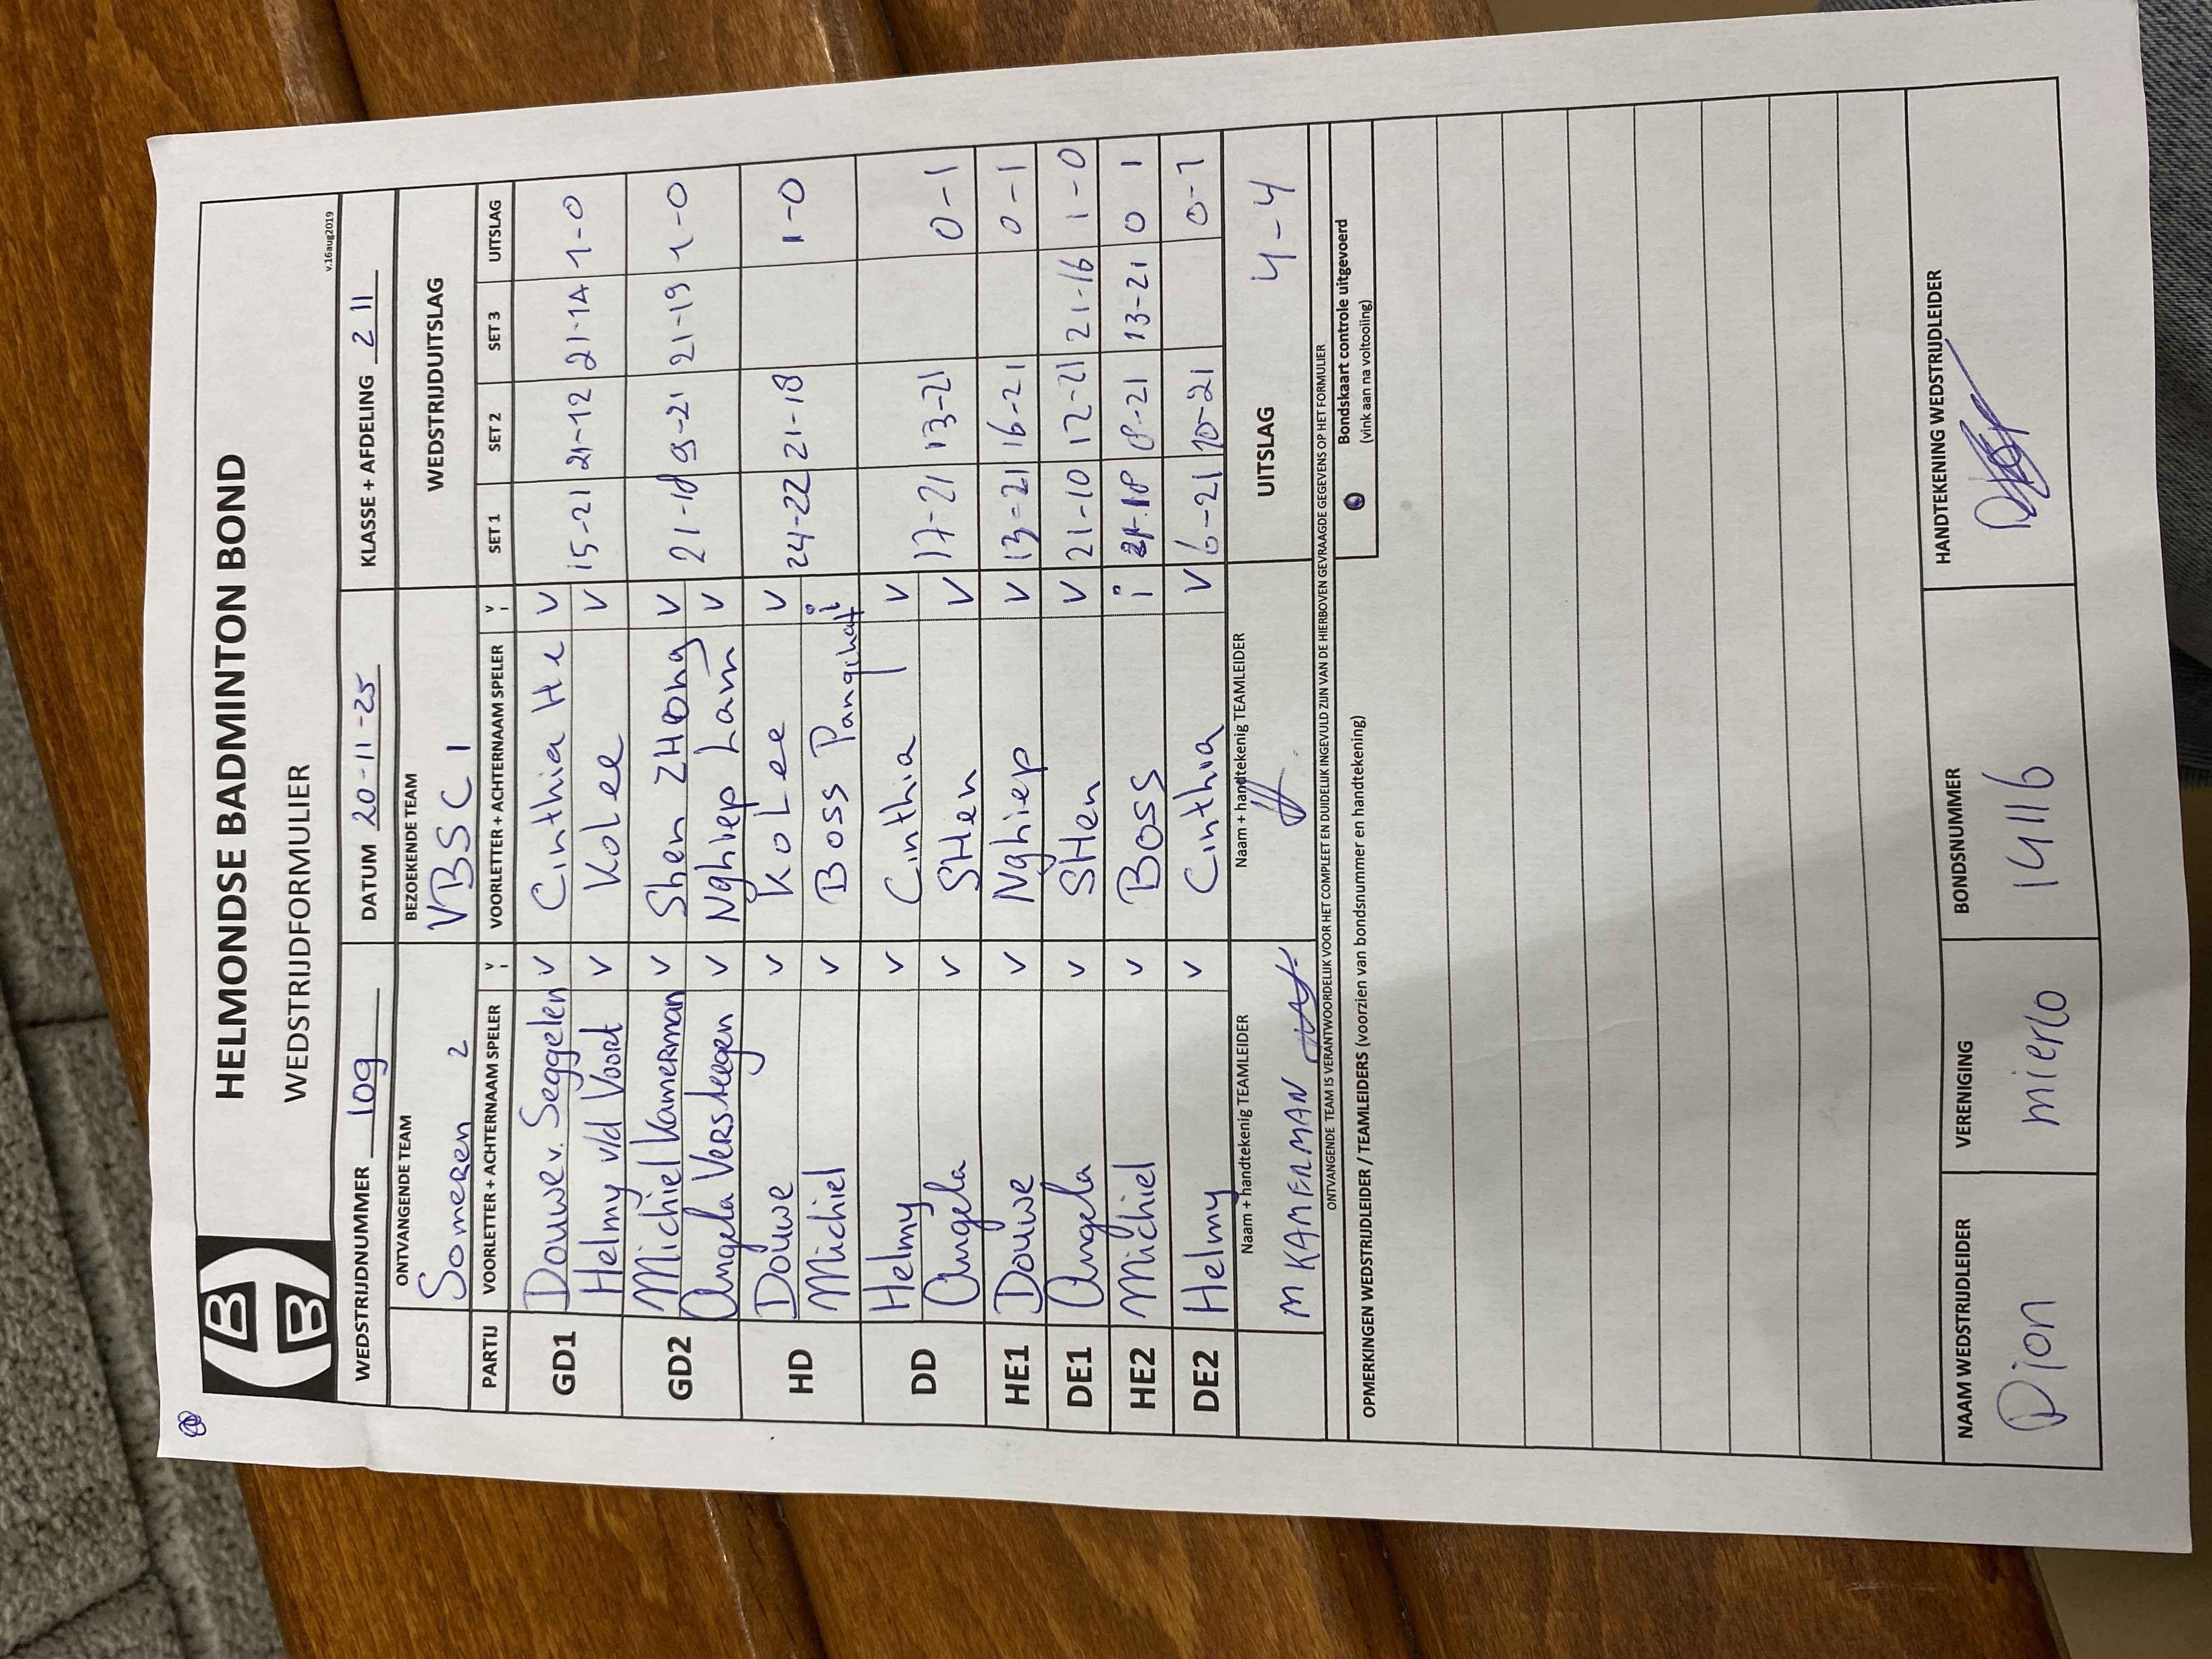 HELMONDSE BADMINTON BOND
WEDSTRIJDFORMULIER
v.16aug2019
WEDSTRIJDNUMMER 109 DATUM 20-11-25 KLASSE + AFDELING 2 11
ONTVANGENDE TEAM BEZOEKENDE TEAM WEDSTRIJDUITSLAG
Someren 2 VBSC 1
PARTIJ VOORLETTER + ACHTERNAAM SPELER V I VOORLETTER + ACHTERNAAM SPELER V I SET 1 SET 2 SET 3 UITSLAG
GD1 Douwe v. Seggelen v Cinthia He v 15-21 21-12 21-14 1-0
Helmy v/d Voort v KoLee v
GD2 Michiel Kamerman v Shen ZHong v 21-18 9-21 21-19 1-0
Angela Versteegen v Nghiep Lam v
HD Douwe v KoLee v 24-22 21-18 1-0
Michiel v Boss Pangchat i
DD Helmy v Cinthia v
Angela v SHen v 17-21 13-21 0-1
HE1 Douwe v Nghiep v 13-21 16-21 0-1
DE1 Angela v SHen v 21-10 12-21 21-16 1-0
HE2 Michiel v Boss i 21-18 8-21 13-21 0 1
DE2 Helmy v Cinthia v 6-21 10-21 0-1
Naam + handtekenig TEAMLEIDER Naam + handtekenig TEAMLEIDER UITSLAG 4-4
M KAMERMAN
ONTVANGENDE TEAM IS VERANTWOORDELIJK VOOR HET COMPLEET EN DUIDELIJK INGEVULD ZIJN VAN DE HIERBOVEN GEVRAAGDE GEGEVENS OP HET FORMULIER
OPMERKINGEN WEDSTRIJDLEIDER / TEAMLEIDERS (voorzien van bondsnummer en handtekening)
Bondskaart controle uitgevoerd
(vink aan na voltooiing)
NAAM WEDSTRIJDLEIDER VERENIGING BONDSNUMMER HANDTEKENING WEDSTRIJDLEIDER
Dion mierlo 14116